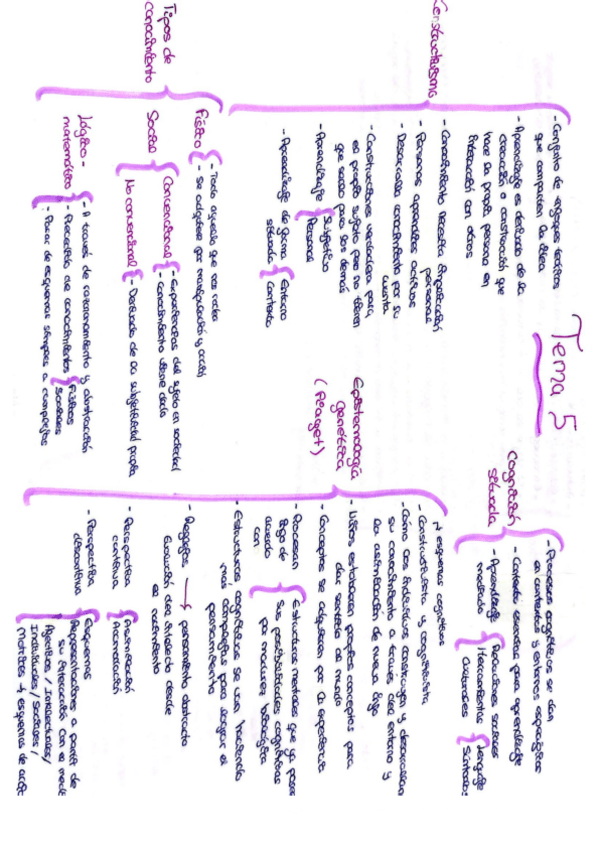 Tema 5
Constructivismo
- Conjunto de enfoques teóricos
que comparten la idea
- Aprendizaje es derivado de la
creación o construcción que
hace la propia persona en
interacción con otros
- Conocimiento necesita
personal
- Personas aprendices activas
- Desarrolla conocimiento por su
cuenta
- Construcciones verdaderas para
el propio sujeto pero no tienen
que serlo para los demás
- Aprendizaje
Subjetivo
Personal
- Aprendizaje de forma
situada
Entorno
Contexto
Tipos de
conocimiento
Físico
- Todo aquello que nos rodea
- Se adquiere por manipulación y acción
Social
Convencional
- Experiencias del sujeto en sociedad
- Conocimiento viene dado
No convencional
- Derivado de la subjetividad propia
Lógico-
matemático
- A través de razonamiento y abstracción
- Precedida de conocimientos
Físicos
Sociales
- Pasar de esquemas simples a complejos
Cognición
situada
- Procesos cognitivos se dan
en contextos y entornos específicos
- Contexto esencial para aprendizaje
- Aprendizaje
mediado
Relaciones sociales
Herramientas
culturales
Lenguaje
Símbolos
Epistemología
genética
(Piaget)
esquemas cognitivos
- Constructivista y cognitivista
- Cómo los individuos construyen y desarrollan
su conocimiento a través del entorno y
la asimilación de nueva info
- Niños establecen propios conceptos para
dar sentido al mundo
- Conceptos se adquieren por la experiencia
- Procesan
info de
acuerdo
con
Estructuras mentales que ya posee
Sus posibilidades cognitivas
por madurez biológica
- Estructuras cognitivas se van haciendo
más complejas para lograr el
pensamiento
→ pensamiento abstracto
Evolución del intelecto desde
el nacimiento
- Perspectiva
continua
Asimilación
Acomodación
- Perspectiva
discontinua
Esquemas
Representaciones a partir de
su interacción con el medio
Afectivos / Intelectuales /
Individuales / Sociales /
Motrices → esquemas de acción